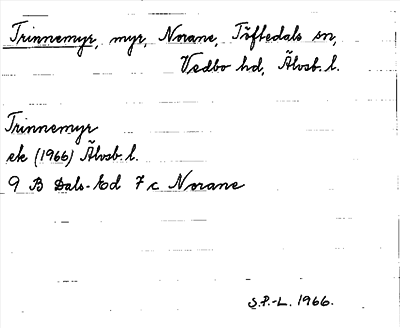 Trinnemyr, myr, Norane, Töftedals sn,
Vedbo hd, Älvsb. l.
Trinnemyr
ek (1966) Älvsb. l.
9 B Dals-Ed 7 c Norane
S.P.-L. 1966.